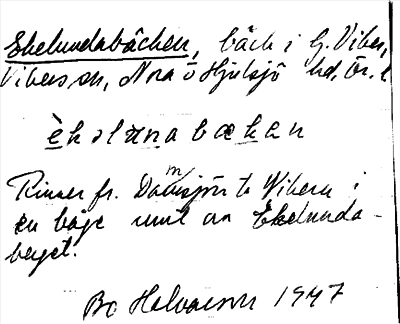 Ekelundabäcken, bäck i G. Viker,
Vikers sn, Nora o Hjulsjö hd, Ör. l
èkəlɯnabækən
Rinner fr. Dammsjön t. Vikern i
en båge runt om Ekelunda-
berget.
Bo Halvarson 1947